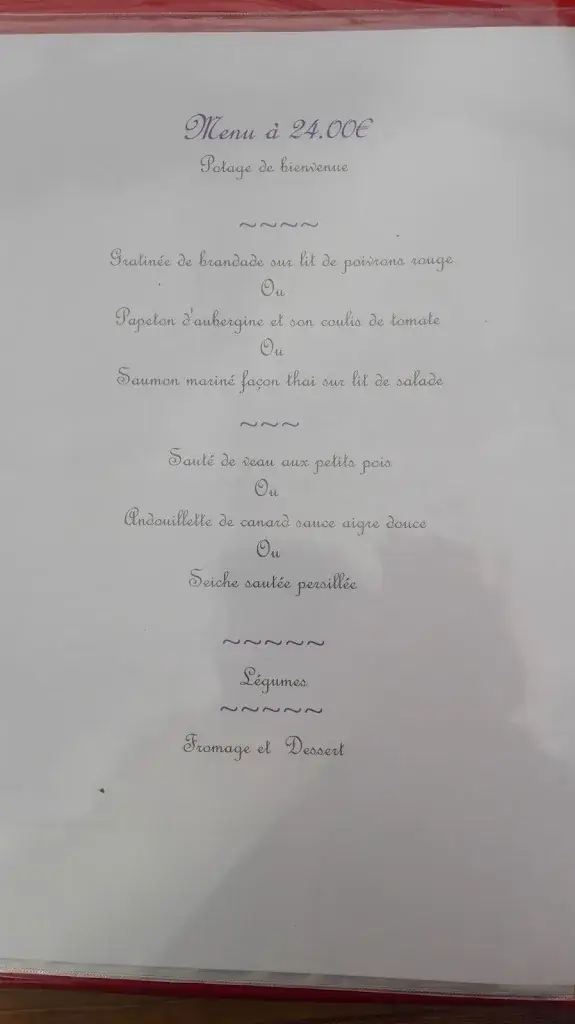 Menu à 24.00€
Potage de bienvenue
~~~~
Gratinée de brandade sur lit de poivrons rouge
Ou
Papeton d'aubergine et son coulis de tomate
Ou
Saumon mariné façon thai sur lit de salade
~~~
Sauté de veau aux petits pois
Ou
Andouillette de canard sauce aigre douce
Ou
Seiche sautée persillée
~~~~~
Légumes
~~~~~
Fromage et Dessert